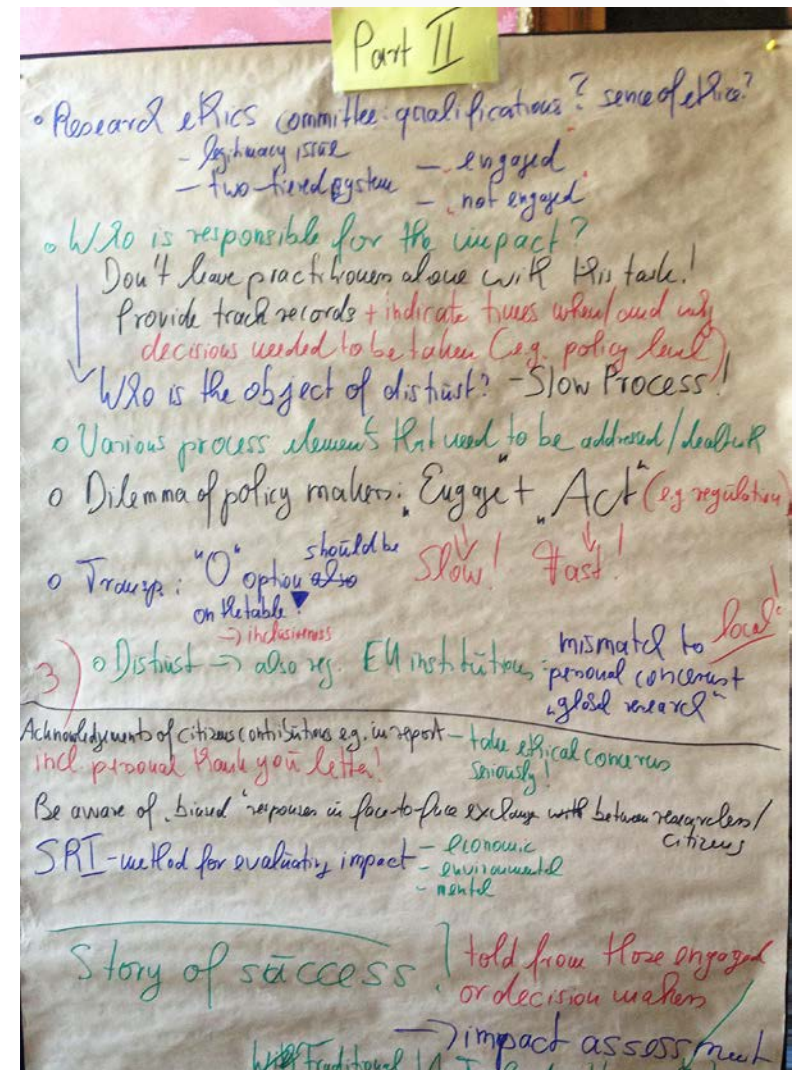 Part II
o Research ethics committee: qualifications? sence of ethics?
- legitimacy issue - engaged
- two-tiered system - not engaged
o Who is responsible for the impact?
Don't leave practitioners alone with this task!
Provide track records + indicate times when/and why
decisions needed to be taken (e.g. policy level)
Who is the object of distrust? - Slow Process!
o Various process elements that need to be addressed/dealt with
o Dilemma of policy makers: "Engage" + "Act" (e.g. regulation)
Slow! Fast!
o Transp.: "O" option also should be
on the table!
→ inclusiveness
3) o Distrust → also reg. EU institutions: mismatch to local
personal concerns +
"global research"
Acknowledgements of citizens contributions eg. in report - take ethical concerns
incl. personal thank you letter! seriously!
Be aware of "biased" responses in face-to-face exchange with between researchers/
citizens
SRI-method for evaluating impact - economic
- environmental
- mental
Story of success! told from those engaged
or decision makers
→ impact assessment
Traditional